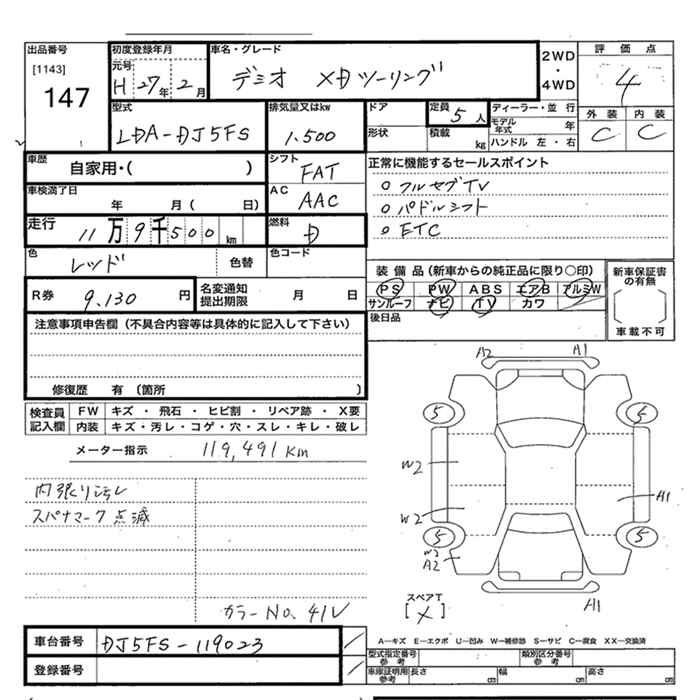 出品番号
[1143]
147
初度登録年月
元号
H 27年 2月
車名・グレード
デミオ XDツーリング
2WD
・
4WD
評価点
4
外装 内装
C C
型式
LDA-DJ5FS
排気量又はkw
1.500
ドア
形状
定員
5人
積載
kg
ディーラー・並行
モデル年式 年
ハンドル 左・右
車歴
自家用・( )
シフト
FAT
車検満了日
年 月 ( 日)
AC
AAC
正常に機能するセールスポイント
○ フルセグTV
○ パドルシフト
○ ETC
走行
11万9千500km
燃料
D
色
レッド
色替
色コード
R券
9.130円
名変通知
提出期限
月 日
装備品 (新車からの純正品に限り○印)
PS PW ABS エアB アルミW
サンルーフ ナビ TV カワ
後日品
新車保証書
の有無
車載不可
注意事項申告欄 (不具合内容等は具体的に記入して下さい)
修復歴 有 (箇所 )
検査員
記入欄
FW キズ・飛石・ヒビ割・リペア跡・X要
内装 キズ・汚レ・コゲ・穴・スレ・キレ・破レ
メーター指示 119,491 Km
内張りゴヨレ
スパナマーク点滅
カラーNo. 41V
A2 A1
5 5
W2
W2
A1
5 5
W2
A2
A1
スペアT
[×]
A―キズ E―エクボ U―凹み W―補修跡 S―サビ C―腐食 XX―交換済
車台番号
DJ5FS-119023
登録番号
型式指定番号
参考
類別区分番号
参考
車庫証明用
参考
長さ cm 幅 cm 高さ cm